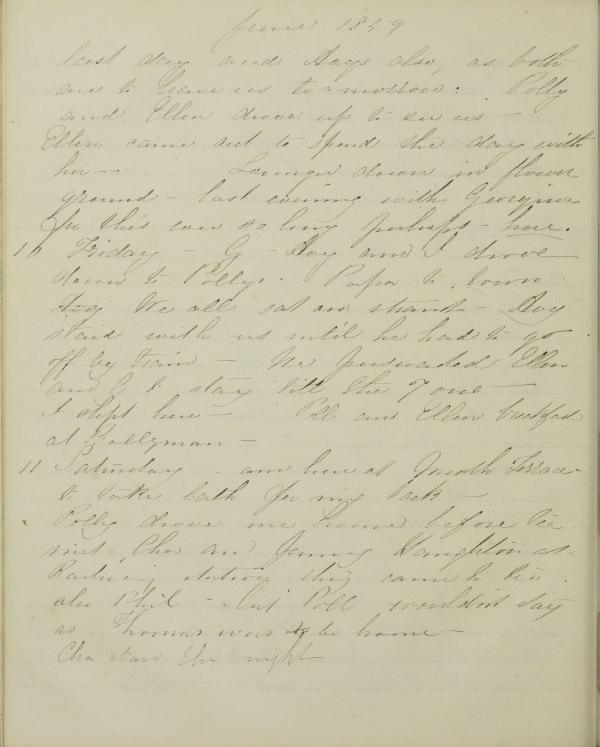 June 1859
last day and Augs also, as both
are to leave us to-morrow: Polly
and Ellen drove up to see us -
Ellen came out to spend the day with
her - Lounge down in flower
ground - last evening with Georgina
for this ever so long perhaps - here.
10 Friday - G - Aug and I drove
down to Pollys. Papa to town
Aug We all sat on strand - Aug
staid with us until he had to go
off by train - We persuaded Ellen
and G to stay till the 7 one -
I slept here - Poll and Ellen breakfast
at Ballyman -
11 Saturday - am here at Meath Terrace
to take bath for my back -
Polly drove me home before tea.
met Cha and Jenny Haughton at
Railway station they came to tea.
also Phil - but Poll wouldn't stay
as Thomas was to be home -
Cha the night